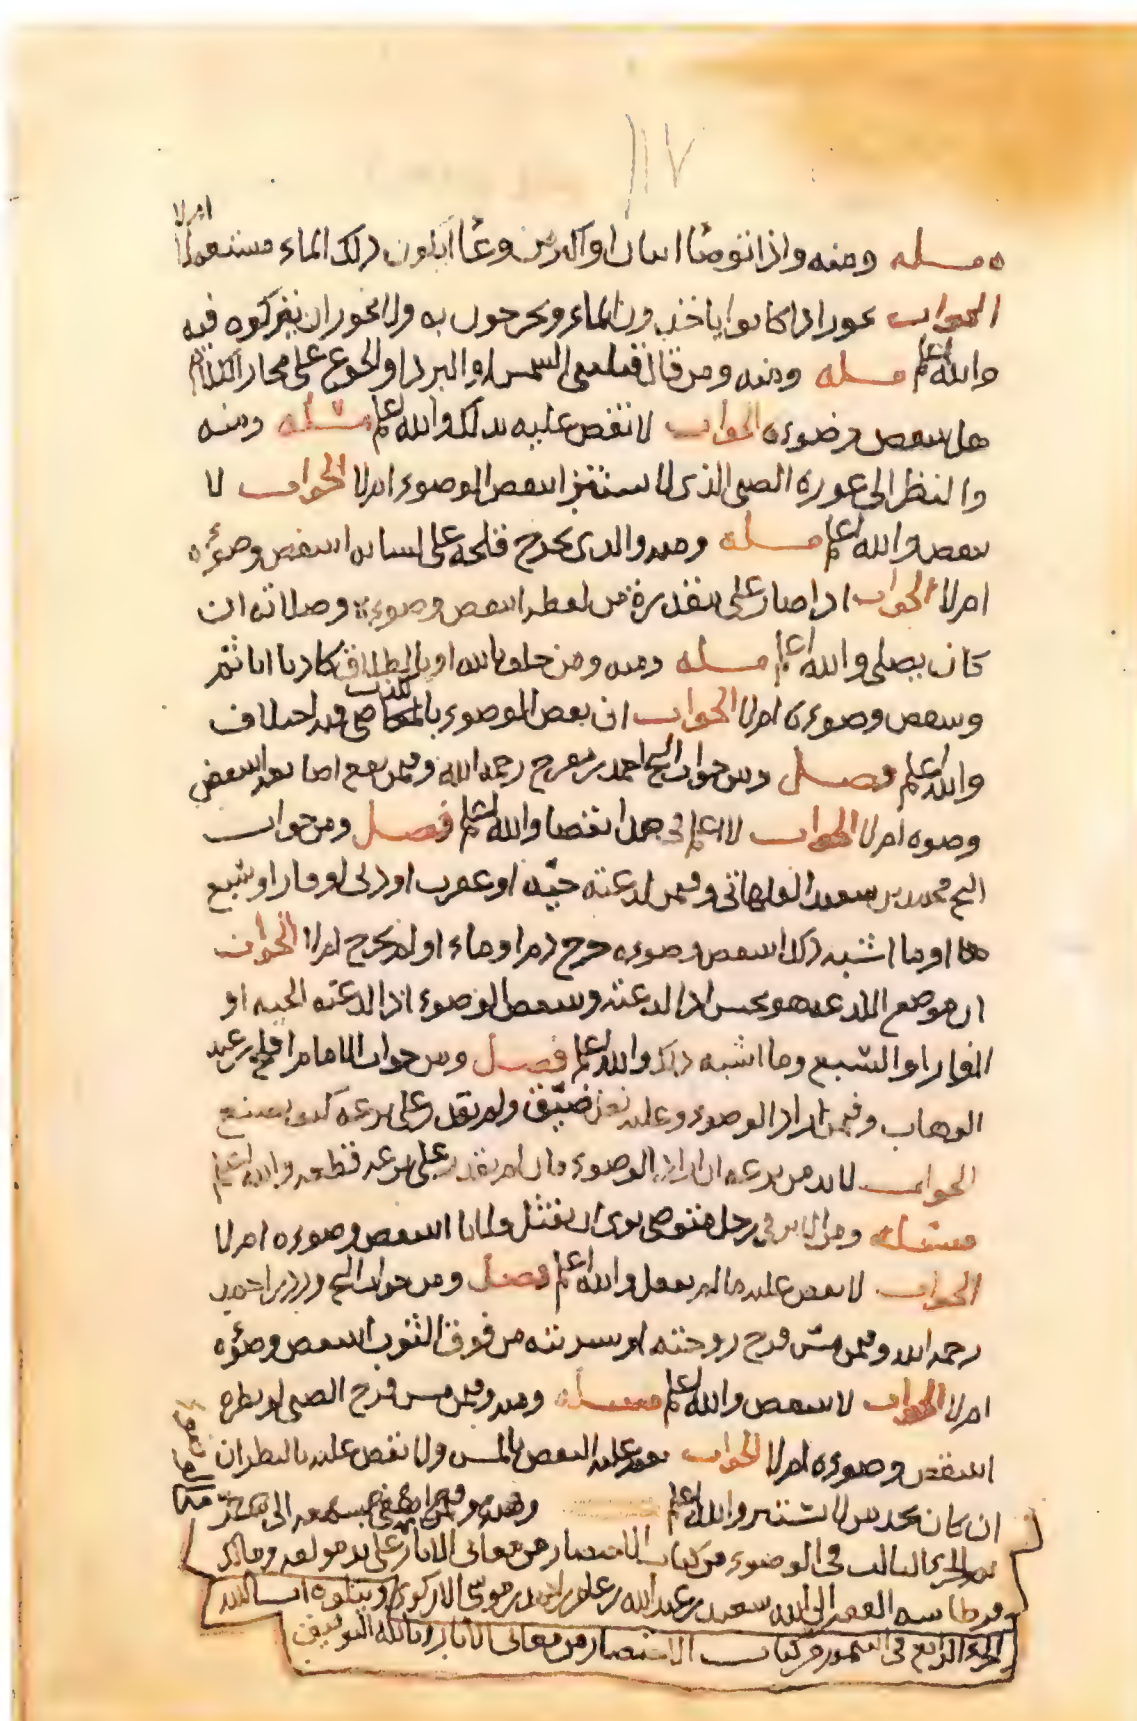 ١١٧
ام لا
مسله ومنه واذا توضا انسان او اكثر من وعاء ايكون ذلك الماء مستعملا
الجواب يجوز اذا كانوا ياخذون الماء ويخرجون به ولا يجوز ان يتركوه فيه
والله اعلم مسله ومنه ومن قال قتلتني الشمس او البرد او الجوع على مجاز الكلام
هل ينتقض وضوءه الجواب لا نقض عليه بذلك والله اعلم مسئله ومنه
والنظر الى عورة الصبي الذي لا يستتر اينقض الوضوء ام لا الجواب لا
ينقض والله اعلم مسله ومنه والذي يخرج قلحه على لسانه اينتقض وضوءه
ام لا الجواب اذا صار على مقدرة من لفظه انتقض وضوءه وصلاته ان
كان يصلي والله اعلم مسله ومنه ومن حلف بالله او بالطلاق كاذبا اياثم
وينتقض وضوءه ام لا الجواب ان نقض الوضوء بالكذب المعاصي فيه اختلاف
والله اعلم فصل ومن جواب الشيخ احمد بن مفرح رحمه الله وفيمن قطع اصابعه اينتقض
وضوه ام لا الجواب لا اعلم في هذا نقضا والله اعلم فصل ومن جواب
الشيخ محمد بن سعيد القلهاتي وفيمن لدغته حيّة او عقرب او دبي او فار او سبع
هذا وما اشبه ذلك اينتقض وضوءه خرج دم او ماء او لم يخرج ام لا الجواب
ان موضع اللدغه هو نجس اذا لدغته وينتقض الوضوء اذا لدغته الحيه او
الفار او السبع وما اشبه ذلك والله اعلم فصل ومن جواب الامام افلح بن عبد
الوهاب وفيمن اراد الوضوء وعليه نعل ضيّق ولم يقدر على نزعه كيف يصنع
الجواب لا بد من نزعه ان اراد الوضوء فان لم يقدر على نزعه قطعه والله اعلم
مسئله ومن في رجل متوضي نوى ان يقتل اينتقض وضوءه ام لا
الجواب لا نقض عليه ما لم يفعل والله اعلم فصل ومن جواب الشيخ ورد بن احمد
رحمه الله وفيمن مس فرج زوجته او سريته من فوق الثوب اينتقض وضوءه
ام لا الجواب لا ينتقض والله اعلم مسئله ومنه وفيمن مس فرج الصبي او نظره
اينتقض وضوءه ام لا الجواب عليه النقض بالمس ولا نقض عليه بالنظر ان
ان كان بحد من لا يستتر والله اعلم ومنه وفيمن بسمعه الى
تم الجزء الثالث في الوضوء من كتاب الاختصار من معاني الاثار على يد مولفه ومالك
قرطاسه الفقير الى الله سعيد بن عبد الله بن عامر بن موسى الازكوي ويتلوه ان شاء الله
الجزء الرابع في من كتاب الاختصار من معاني الاثار وبالله التوفيق